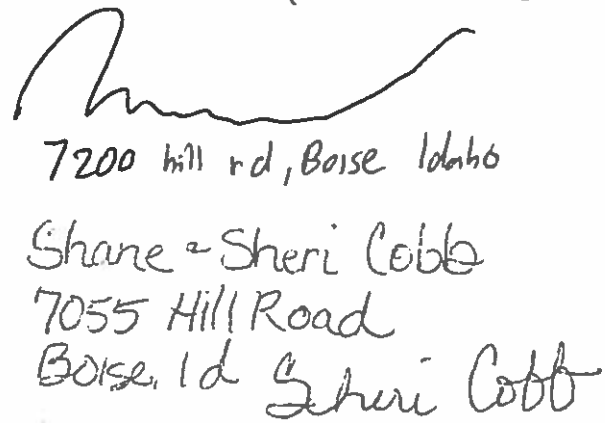 7200 hill rd, Boise Idaho
Shane - Sheri Cobb
7055 Hill Road
Boise, Id Sheri Cobb